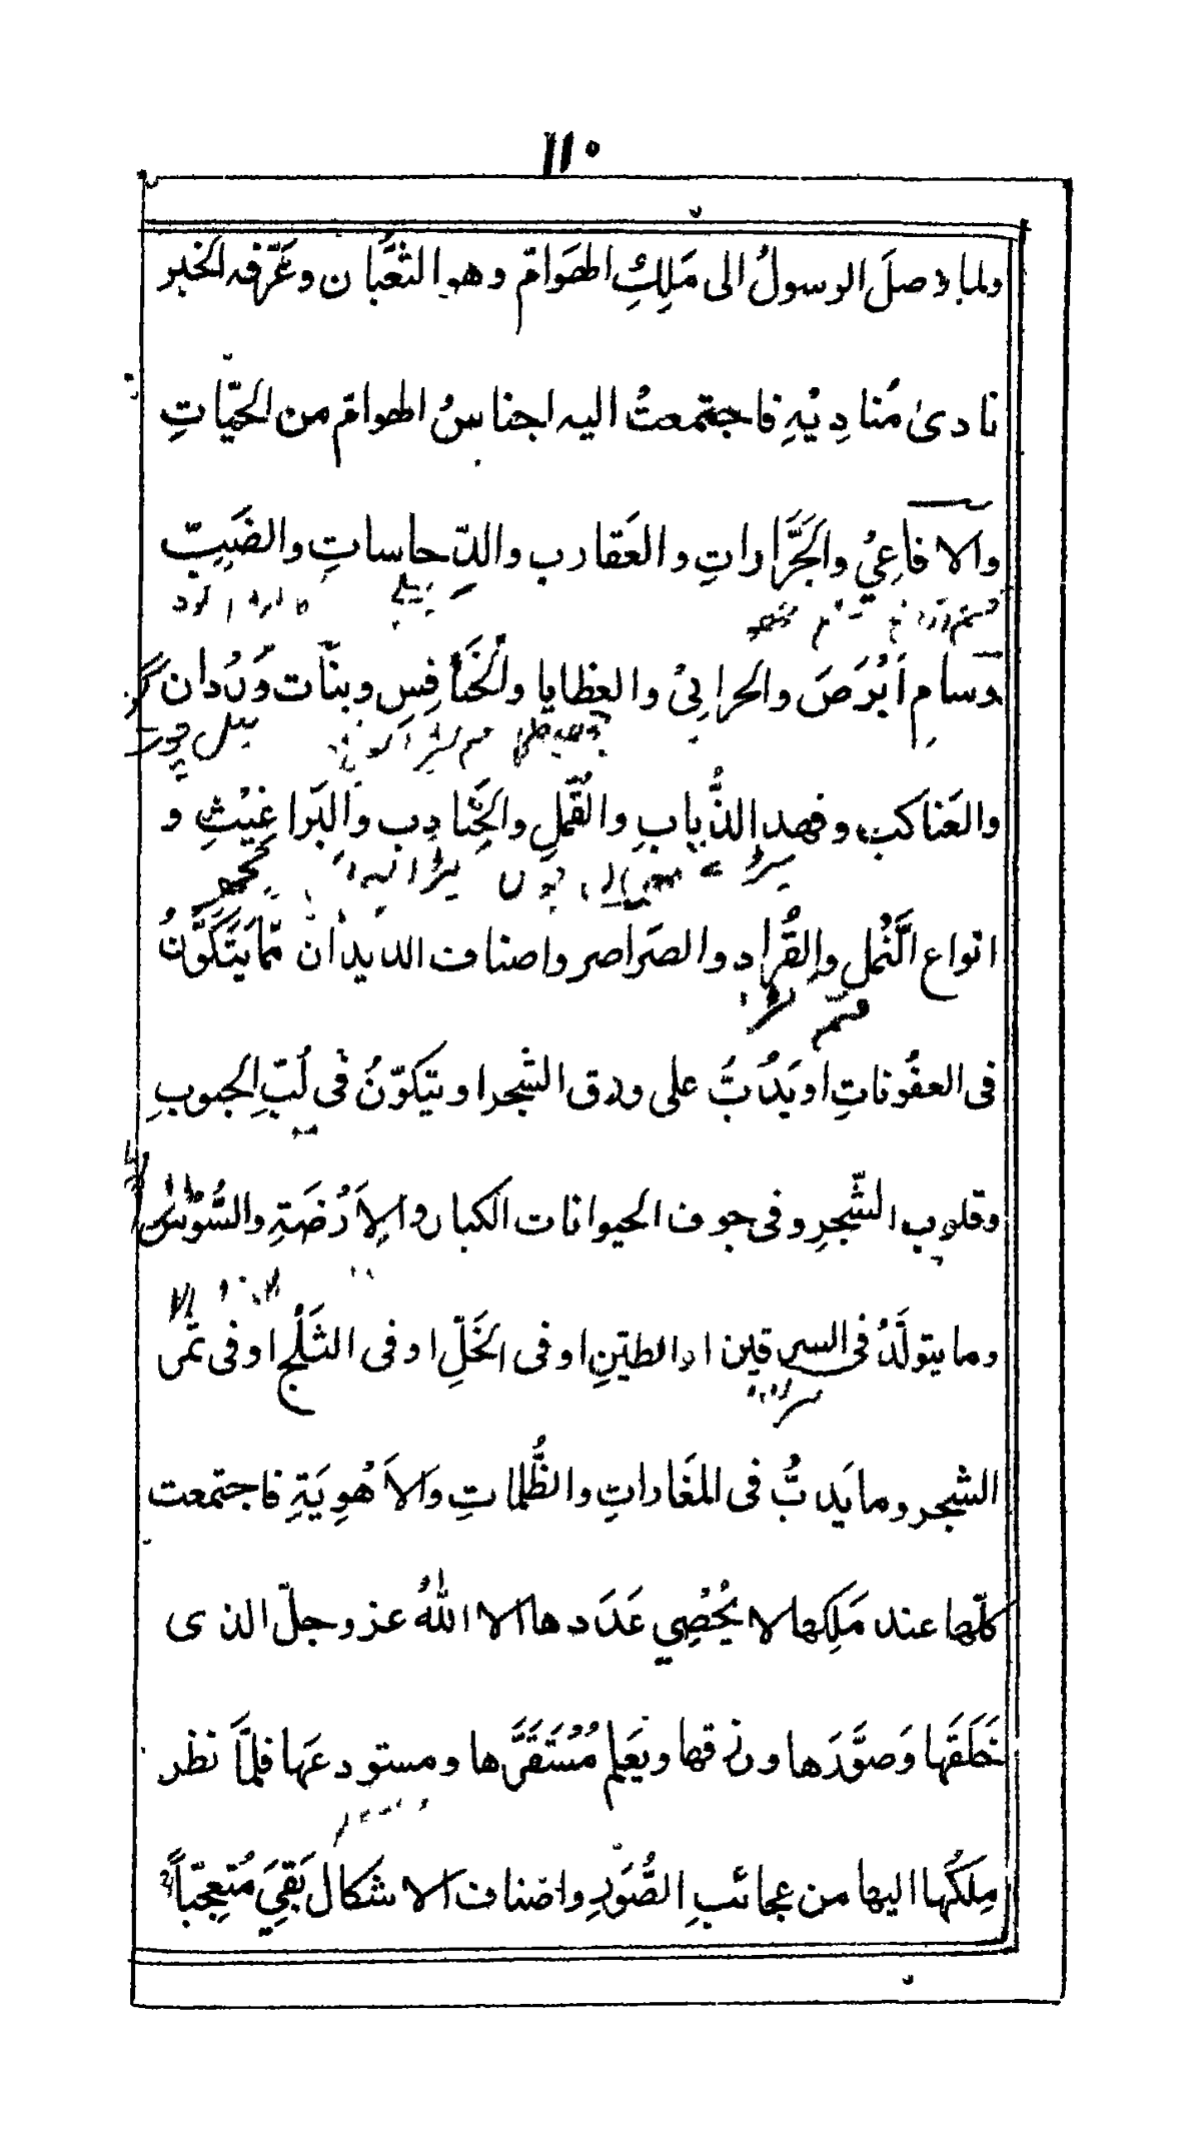 ١١٠
ولما وصلَ الرسولُ الى مَلِكِ الهَوَامّ وهو الثُّعَبَان وعَرّفه الخبر
نادىٰ مُنادِيْهِ فاجتمعتُ اليه اجناسُ الهوامّ من الحيّاتِ
والافاعِيْ والجَرَّاراتِ والعَقارب والدِّحاساتِ والضَبِبّ
وسام اَبْرَصَ والحرابىْ والعظايا والْخَنَافِسِ وبنَات وَرْدان
والعَناكب وفهد الذُّبابِ والقُمّلِ والجَنادِب والبَراغِيْثِ و
انواع النَّمْل والقُراد والصَراصر واصناف الديدان مّما يَتَكَوَّنُ
فى العفُوناتِ او يَدُبُّ على ورق الشّجر او يتكوّنُ فى لُبّ الحبوبِ
وقلوب الشّجرِ وفى جوف الحيوانات الكبار والاَرْضَةِ والسُّوْسُ
وما يتولّدُ فى السرقين او الطيّنِ او فى الخَلِّ او فى الثَلْج او فى ثمر
الشجر وما يَدبُّ فى المغَاراتِ والظُّلماتِ والاَهْوِيَةِ فاجتمعت
كلّها عند مَلِكها لا يُحْصِي عَدَدها الا اللهُ عز وجلّ الذى
خَلَقَها وَصوَّرَها ورزقها ويَعَلم مُسْتَقَرَّها ومستودعَها فلمَّا نظر
مِلكُها اليها من عجائبِ الصُّوَرِ واصناف الاشكال بَقِيَ مُتعجّباً